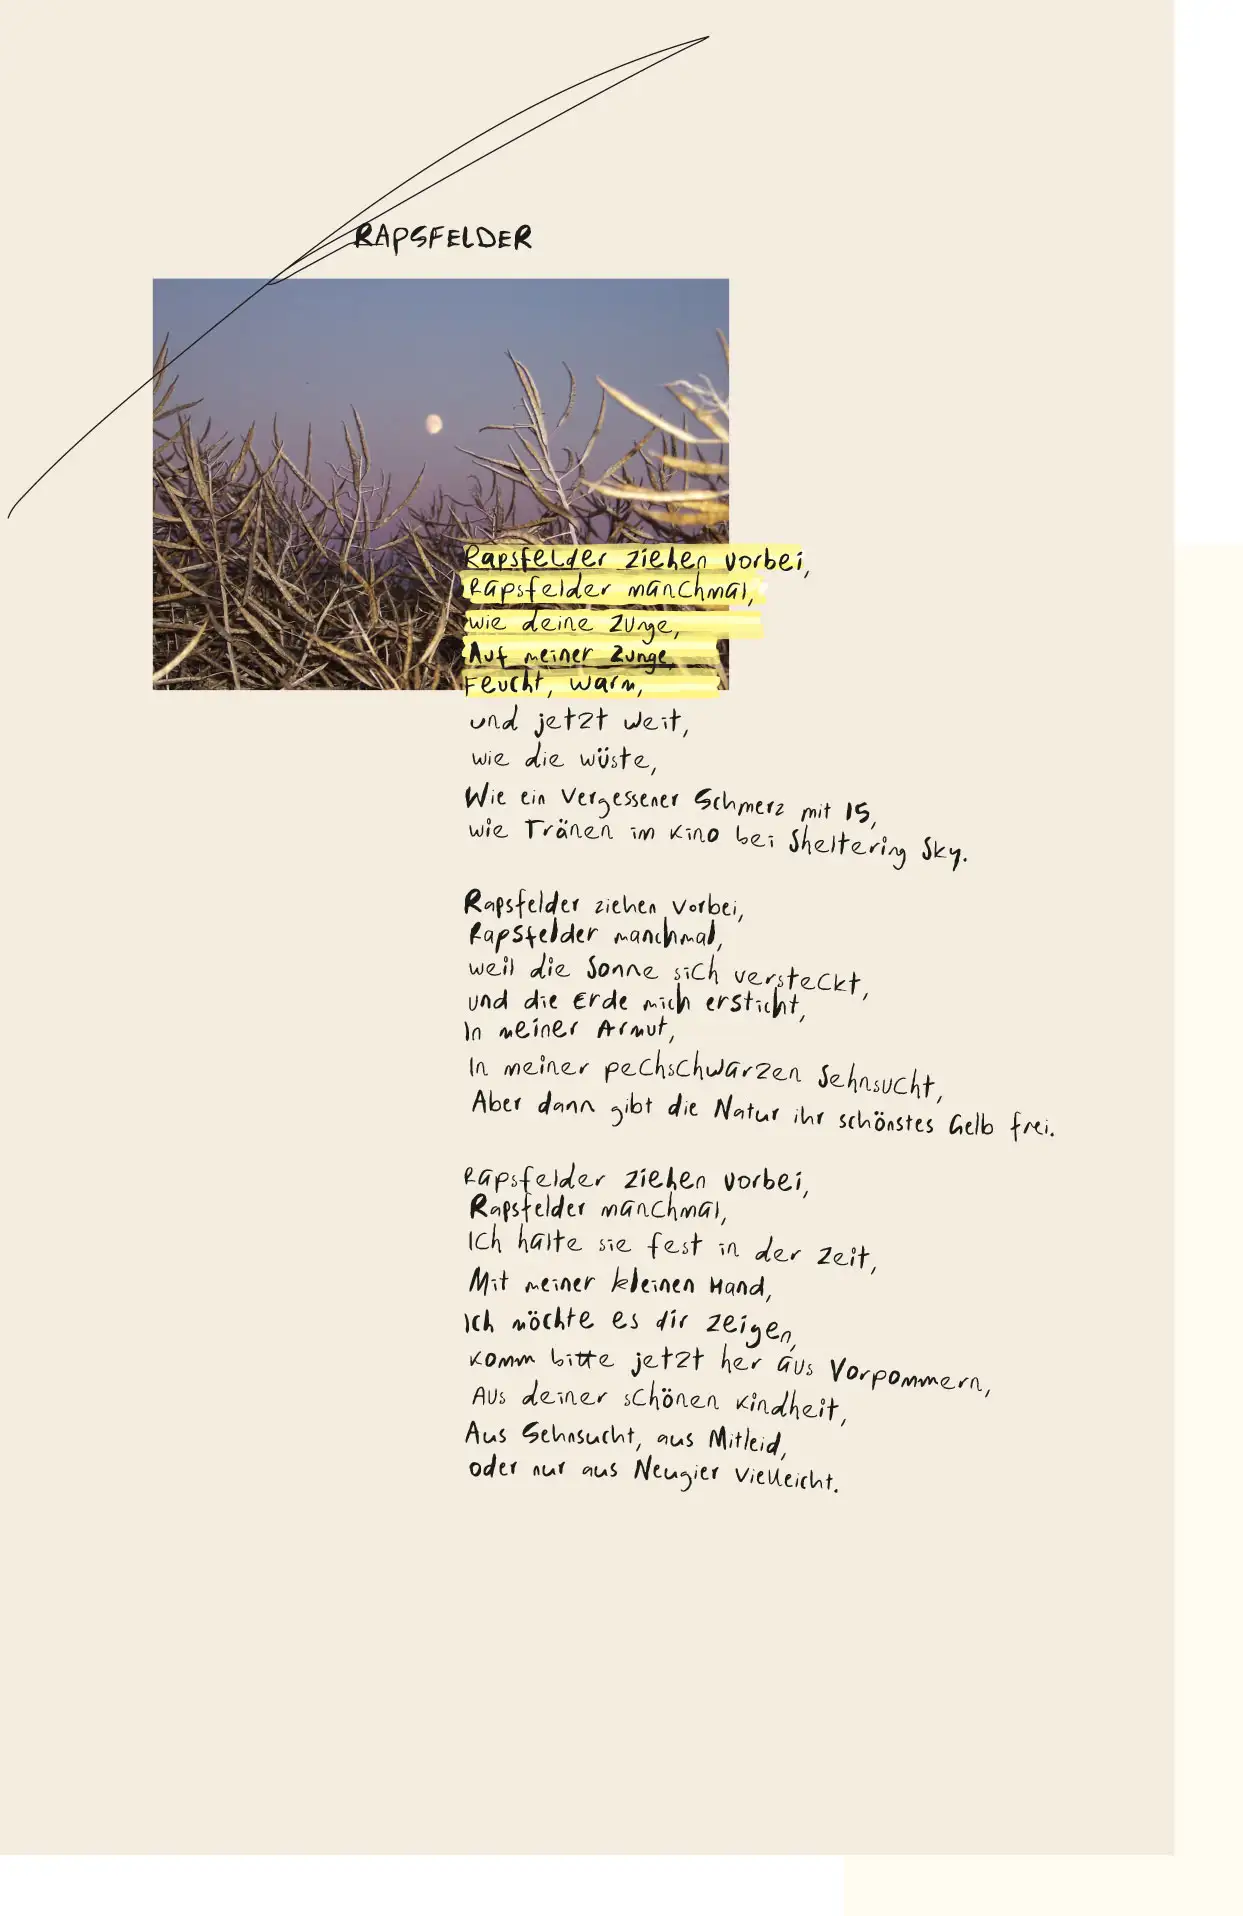 RAPSFELDER
Rapsfelder ziehen vorbei,
Rapsfelder manchmal,
wie deine Zunge,
Auf meiner Zunge,
Feucht, warm,
und jetzt weit,
wie die wüste,
Wie ein vergessener Schmerz mit 15,
wie Tränen im Kino bei Sheltering Sky.
Rapsfelder ziehen vorbei,
Rapsfelder manchmal,
weil die Sonne sich versteckt,
und die Erde mich ersticht,
In meiner Armut,
In meiner pechschwarzen Sehnsucht,
Aber dann gibt die Natur ihr schönstes Gelb frei.
Rapsfelder ziehen vorbei,
Rapsfelder manchmal,
Ich halte sie fest in der Zeit,
Mit meiner kleinen Hand,
Ich möchte es dir zeigen,
Komm bitte jetzt her aus Vorpommern,
Aus deiner schönen Kindheit,
Aus Sehnsucht, aus Mitleid,
oder nur aus Neugier vielleicht.